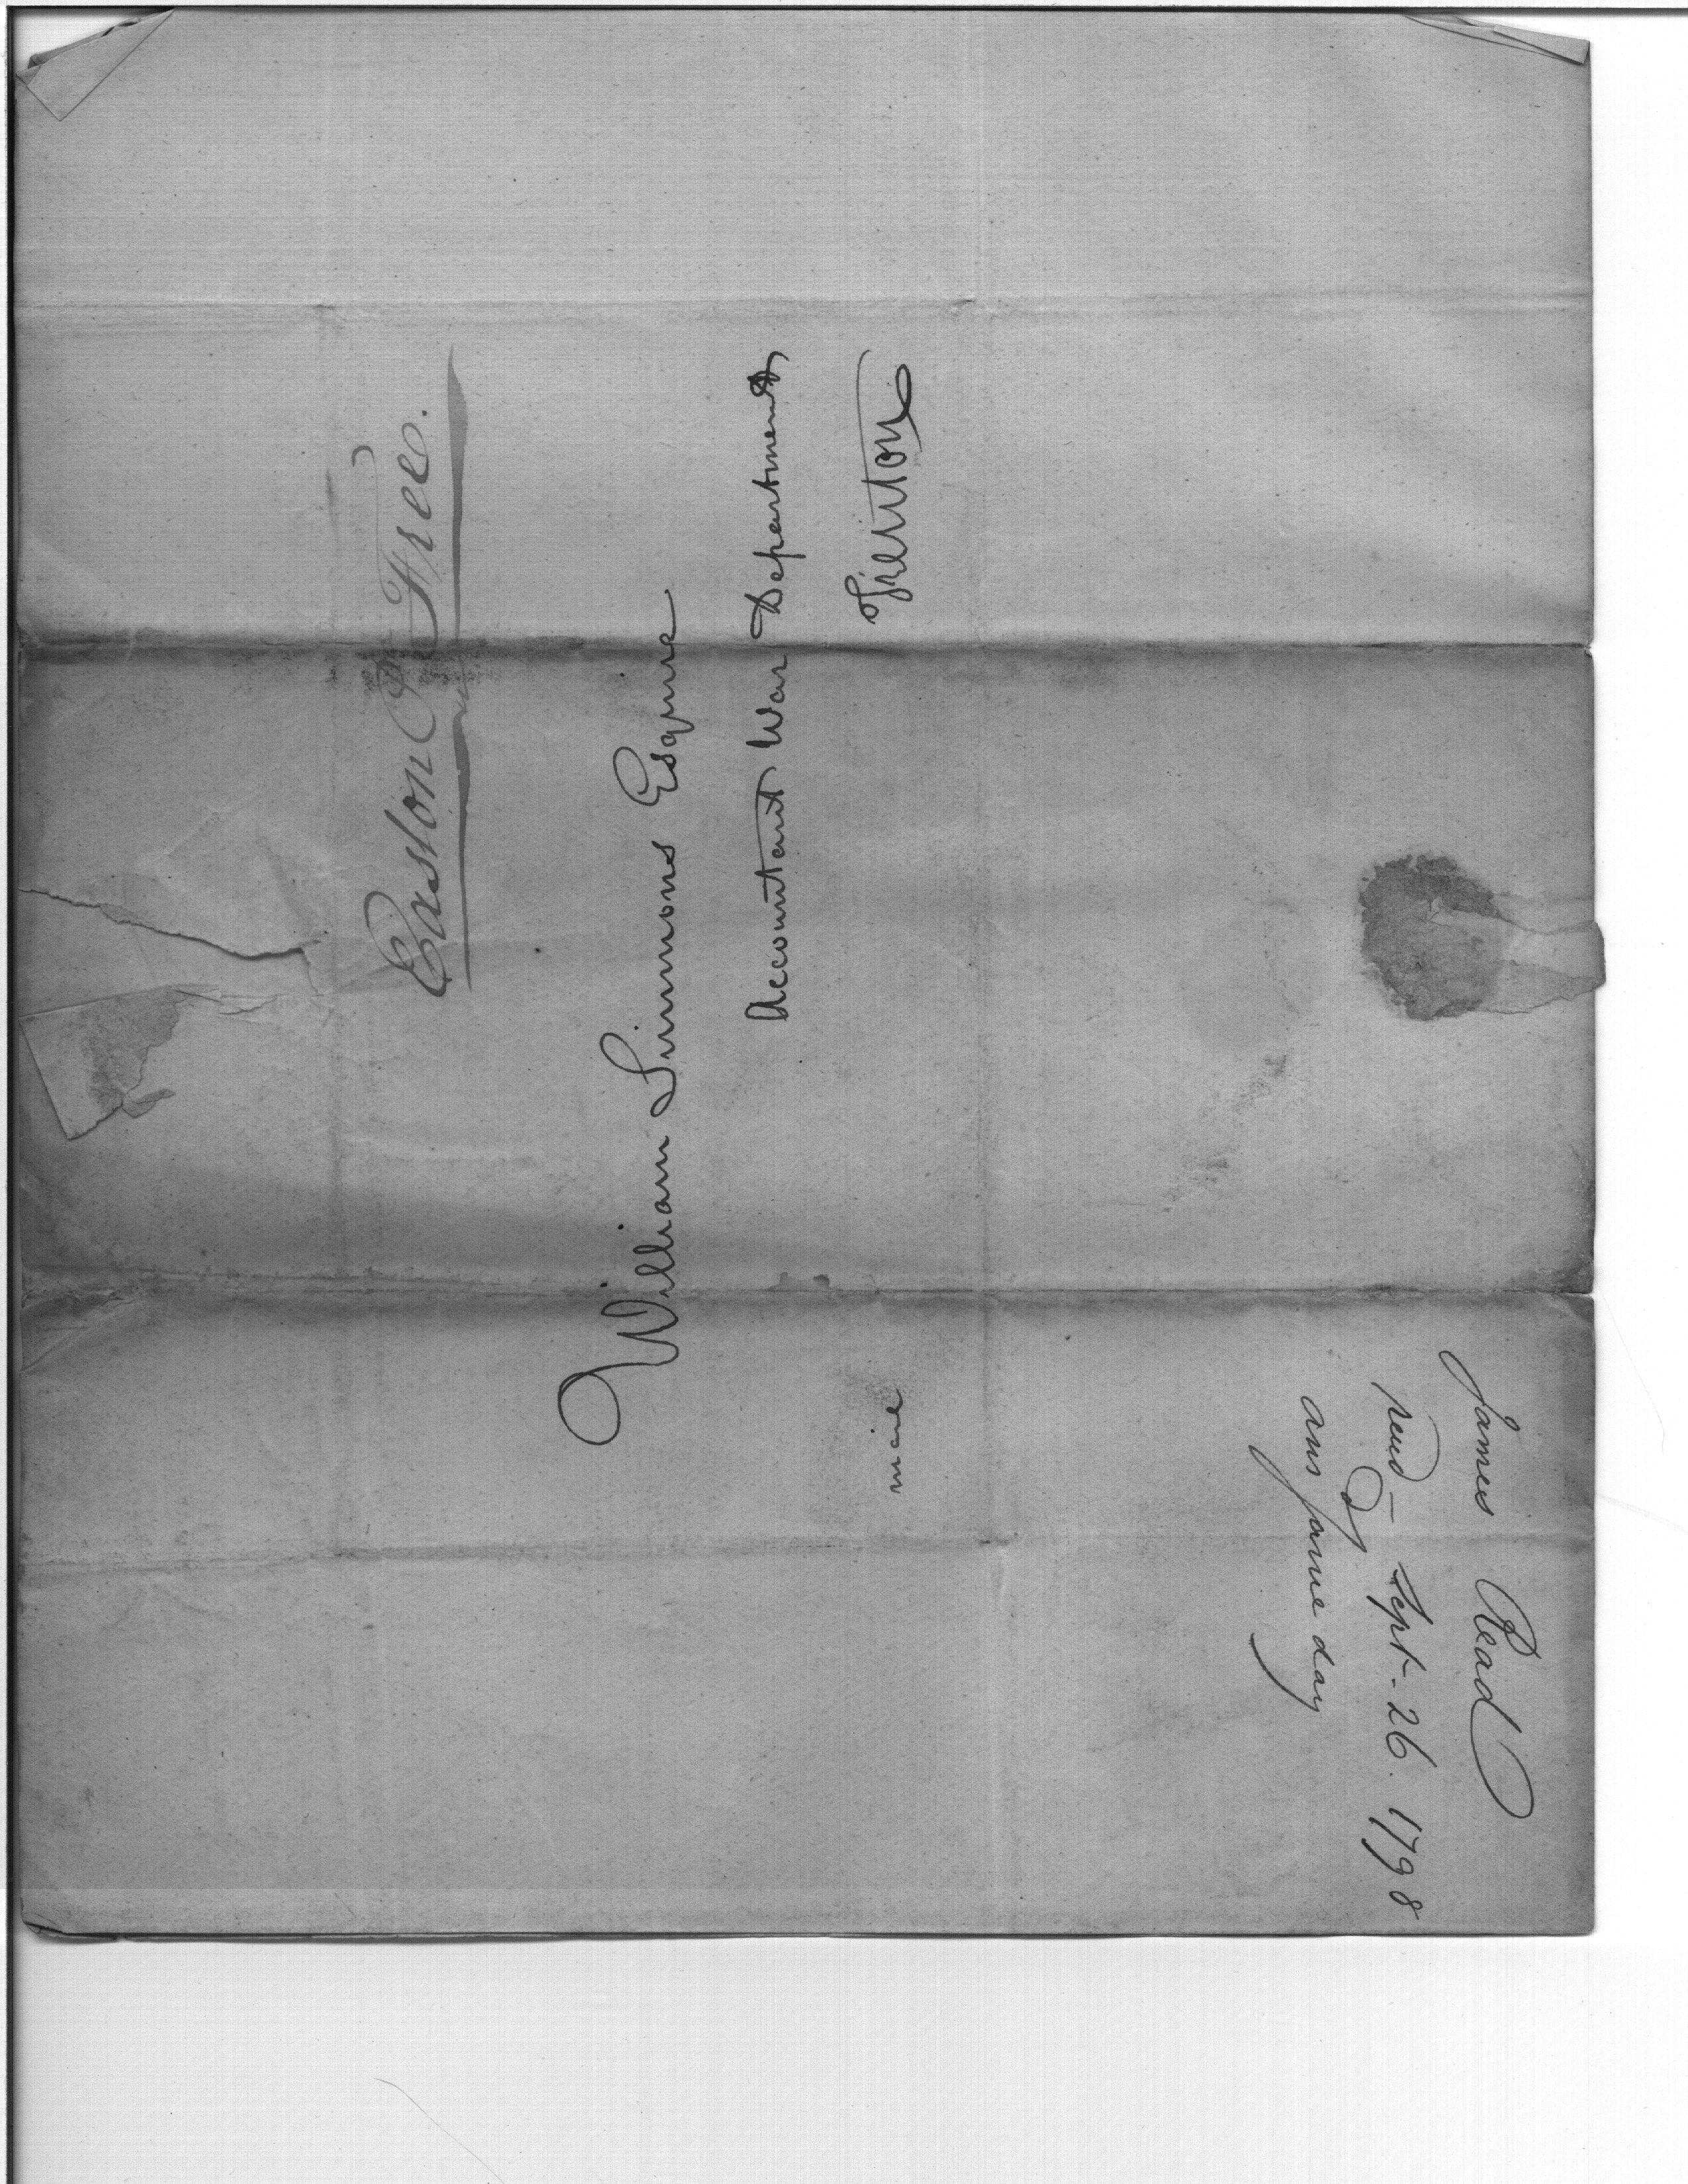 Easton Pa Free.
William Simmons Esquire
Accountant War Department
Trenton
mail
James Read
recd Sept- 26. 1798
ans same day